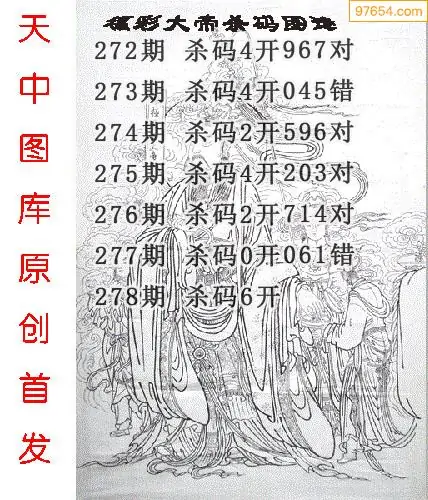 97654.com
福彩大帝杀码图迷
272期 杀码4开967对
273期 杀码4开045错
274期 杀码2开596对
275期 杀码4开203对
276期 杀码2开714对
277期 杀码0开061错
278期 杀码6开
天中图库原创首发